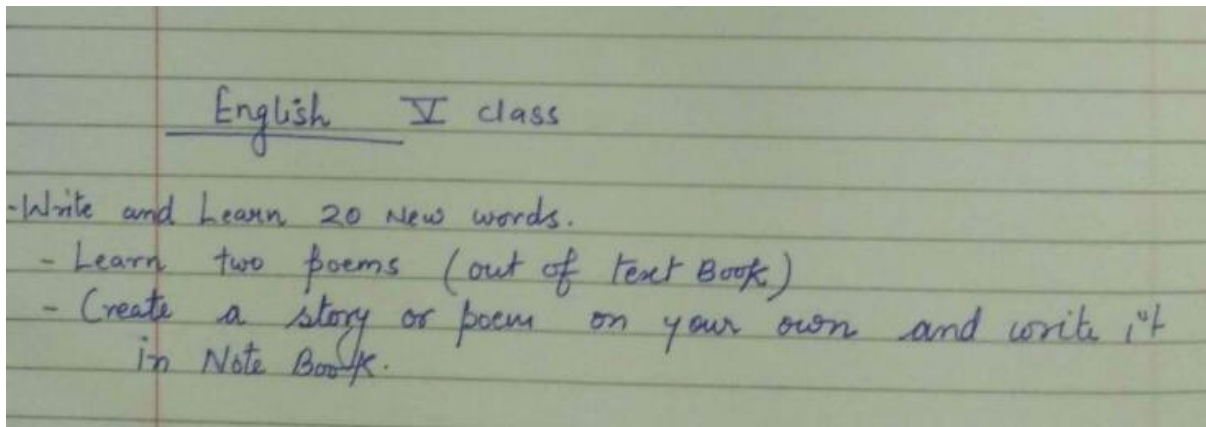 English V class
-Write and Learn 20 New words.
- Learn two poems (out of text Book)
- Create a story or poem on your own and write it
in Note Book.